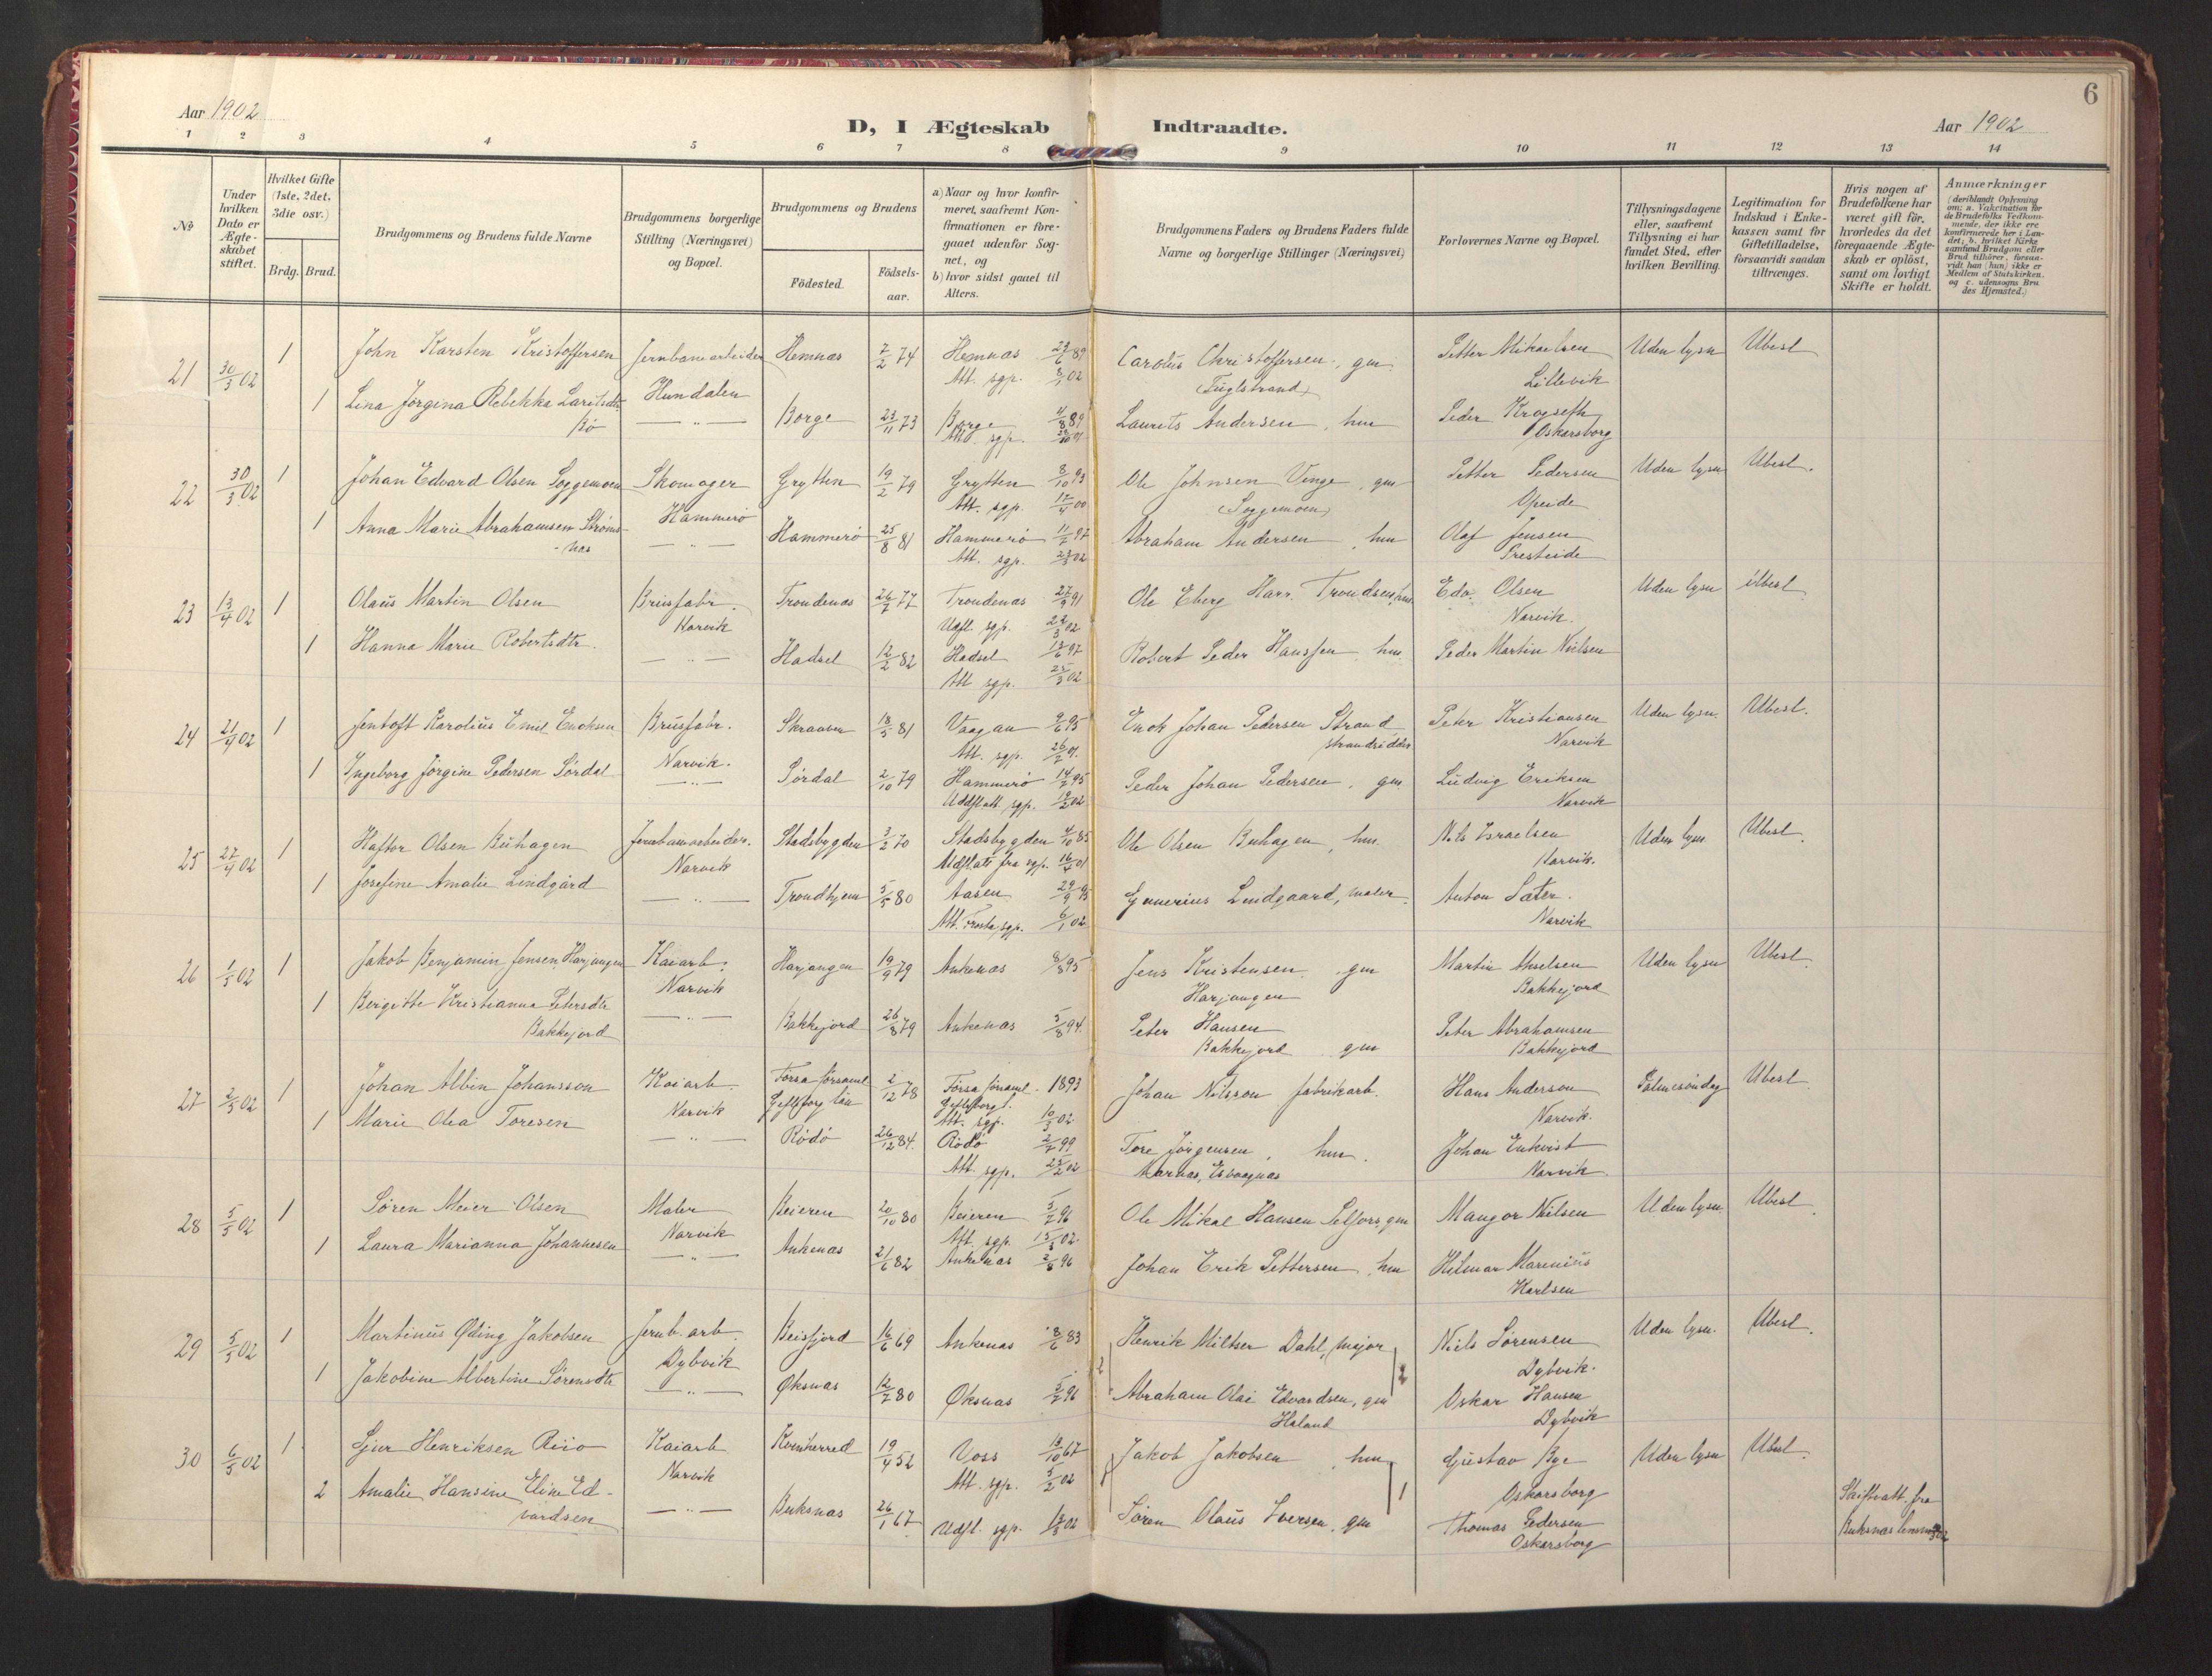 Aar 1902
D, I Ægteskab Indtraadte.
Aar 1902
6
1 2 3 4 5 6 7 8 9 10 11 12 13 14
No
Under hvilken Dato er Ægteskabet stiftet.
Hvilket Gifte (1ste, 2det, 3die osv.)
Brdg. Brud.
Brudgommens og Brudens fulde Navne
Brudgommens borgerlige Stilling (Næringsvei) og Bopæl.
Brudgommens og Brudens
Födested.
Födsels-aar.
a) Naar og hvor konfirmeret, saafremt Konfirmationen er foregaaet udenfor Sognet, og
b) hvor sidst gaaet til Alters.
Brudgommens Faders og Brudens Faders fulde Navne og borgerlige Stillinger (Næringsvei)
Forlovernes Navne og Bopæl.
Tillysningsdagene eller, saafremt Tillysning ei har fundet Sted, efter hvilken Bevilling.
Legitimation for Indskud i Enkekassen samt for Giftetilladelse, forsaavidt saadan tiltrænges.
Hvis nogen af Brudefolkene har været gift för, hvorledes da det foregaaende Ægteskab er oplöst, samt om lovligt Skifte er holdt.
Anmærkninger (deriblandt Oplysning om: a. Vakcination for de Brudefolks Vedkommende, der ikke ere konfirmerede her i Landet; b. hvilket Kirkesamfund Brudgom eller Brud tilhörer, forsaavidt han (hun) ikke er Medlem af Statskirken. og c. udensogns Brudes Hjemsted.)
21 30/3 02 1 John Karsten Kristoffersen Jernbanearbeider Hemnæs 7/2 74 Hemnæs 89 Carolus Christoffersen, gm. Petter Mikaelsen Uden lysn Ubest
Hundalen Att. sgp. 02 (Fuglstrand) Lillevik
1 Lina Jørgina Rebekka Laritsdtr. Borge 23/11 73 Borge 89 Laurits Andersen, hm Peder Krogseth
Bø Att. sgp. Oskarsborg
22 30/3 02 1 Johan Edvard Olsen Soggemoen Skomager Grytten 19/2 79 Grytten 8/10 93 Ole Johnsen Venge, gm Petter Pedersen Uden lysn Ubest.
Hammerø Att. sgp. 00 (Soggemoen) Opeide
1 Anna Marie Abrahamsen Strøms- Hammerø 25/8 81 Hammerø 97 Abraham Andersen, hm Olaf Jensen
næs Att. sgp. 02 Presteide
23 13/4 02 1 Olaus Martin Olsen Brusfabr. Trondenæs 26/7 77 Trondenæs 27/9 91 Ole Eberg Edv. Olsen Uden lysn Ubest
Narvik Udfl. sgp. 02 Narvik.
1 Hanna Marie Robertsdtr. Hadsel 12/2 82 Hadsel 97 Robert Peder Hanssen, hm Peder Martin Nielsen
Att sgp. 02
24 21/4 02 1 Jentoft Karolius Emil Enoksen Brusfabr. Skraaven 18/5 81 Vaagan 9/6 95 Enok Johan Pedersen Strand Peter Kristiansen Uden lysn. Ubest.
Narvik. Att. sgp. strandsidder Narvik
1 Ingeborg Jörgine Pedersen Sördal Sørdal 2/10 79 Hammerø 95 Peder Johan Pedersen, gm Ludvig Eriksen
Udflatt sgp. 02 Narvik
25 27/4 02 1 Haftor Olsen Buhagen Jernbanearbeider. Stadsbygden 3/2 70 Stadsbygden 85 Ole Olsen Buhagen, hm. Nils Israelsen Uden lysn Ubest.
Narvik Udflatt fra sgp. 16/4 01 Narvik.
1 Josefine Amalie Lindgård Trondhjem 5/5 80 Aasen 29/9 95 Lindgaard, maler. Anton Sæter.
Att. Frosta sgp. 6/1 02 Narvik
26 1/5 02 1 Jakob Benjamin Jensen Harjangen Kaiarb. Harjangen 19/9 79 Ankenæs 8/8 95 Jens Kristensen, gm Martin Akselsen Uden lysn Ubest
Narvik Harjangen Bakkejord
1 Bergitte Kristianna Petersdtr Bakkejord 26/8 79 Ankenæs 5/8 94. Peter Hansen Peter Abrahamsen
Bakkejord Bakkejord gm Bakkejord
27 2/5 02 1 Johan Albin Johansson Kaiarb. Forsa församl. 2/12 78 Forsa församl. 1893 Johan Nilsson fabrikarb. Hans Anderson Palmesöndag Ubest
Narvik Gefleborg län Gefleborgl. Narvik.
1 Marie Olea Toresen Att. sgp. 02
Rödö 26/12 84. Rödö 99 Tore Jörgensen, hm. Johan Enkvist
Att. sgp. 02 Narvik.
28 5/5 02 1 Sören Meier Olsen Maler Beieren 20/10 80 Beieren 96 Ole Mikal Hansen Selfors, gm Mangor Nilsen Uden lysn. Ubest
Narvik Att. sgp. 02
1 Laura Marianna Johannesen Ankenæs 21/6 82 Ankenæs 96 Johan Erik Pettersen, hm Hilmar Marenius
Karlsen
29 5/5 02 1 Martinus Øding Jakobsen Jernb. arb. Beisfjord 16/6 69 Ankenæs 83 Henrik Miltzer Dahl, major Niels Sørensen Uden lysn. Ubest.
Dybvik Dybvik.
1 Jakobine Albertine Sörensdtr Øksnæs 12/2 80 Øksnæs 96 Abraham Olai Edvardsen, gm 2 Oskar Hansen
Haland Dybvik
30 6/5 02 1 Sjur Henriksen Riio Kaiarb Kvinherred 19/4 52 Voss 67 Jakob Jakobsen, hm Gustav Bye Uden lysn Ubest.
Narvik Att. sgp. 02 Oskarsborg
2 Amalie Hansine Eline Ed- Buksnæs 26/1 67 Udfl. sgp. 02 Sören Olaus Iversen, gm 1 Thomas Pedersen Skifteatt. fra
vardsen Oskarsborg Buksnæs